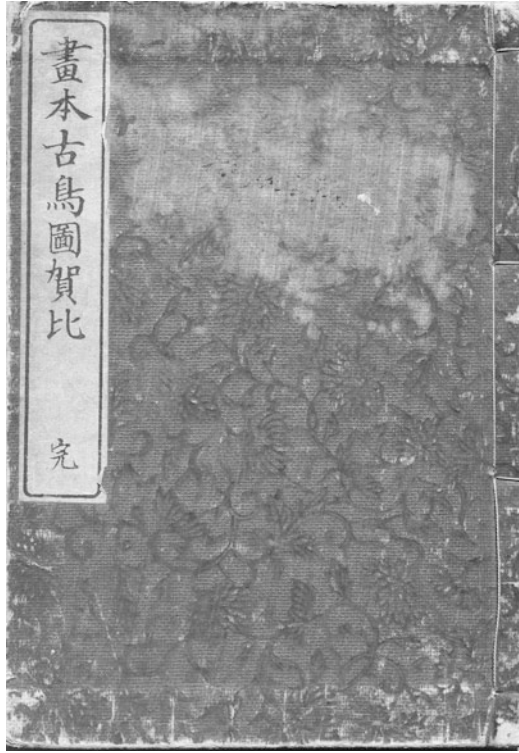 畫本古鳥圖賀比
完